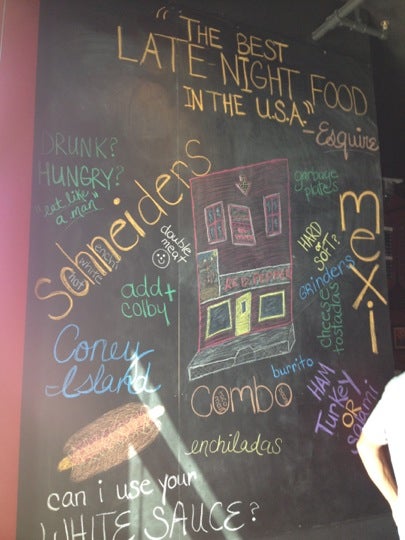 "THE BEST
LATE NIGHT FOOD
IN THE U.S.A."
-Esquire
DRUNK?
HUNGRY?
"eat like
a man"
Schneiders
double
meat
garbage
plates
HARD
OR
SOFT?
mexi
GRINDERS
cheese
tostadas
add +
colby
Coney
Island
combo
burrito
HAM
Turkey
OR
salami
enchiladas
can i use your
WHITE SAUCE?